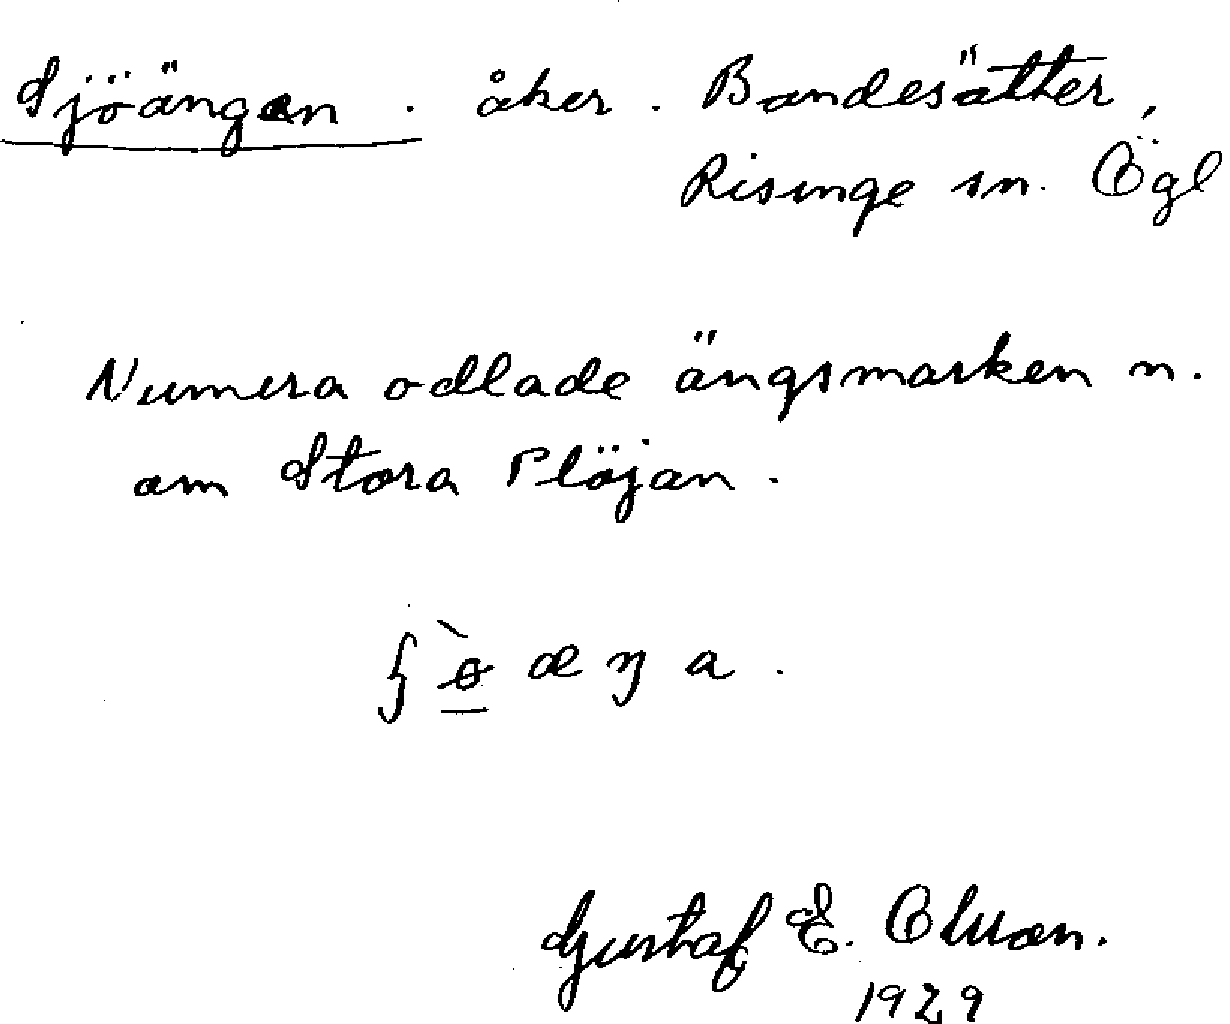 Sjöängen . åker . Bandesätter,
Risinge sn. Ögl
Numera odlade ängsmarken n.
om Stora Plöjan.
ʃɵ̀æŋa .
Gustaf E. Olsson.
1929